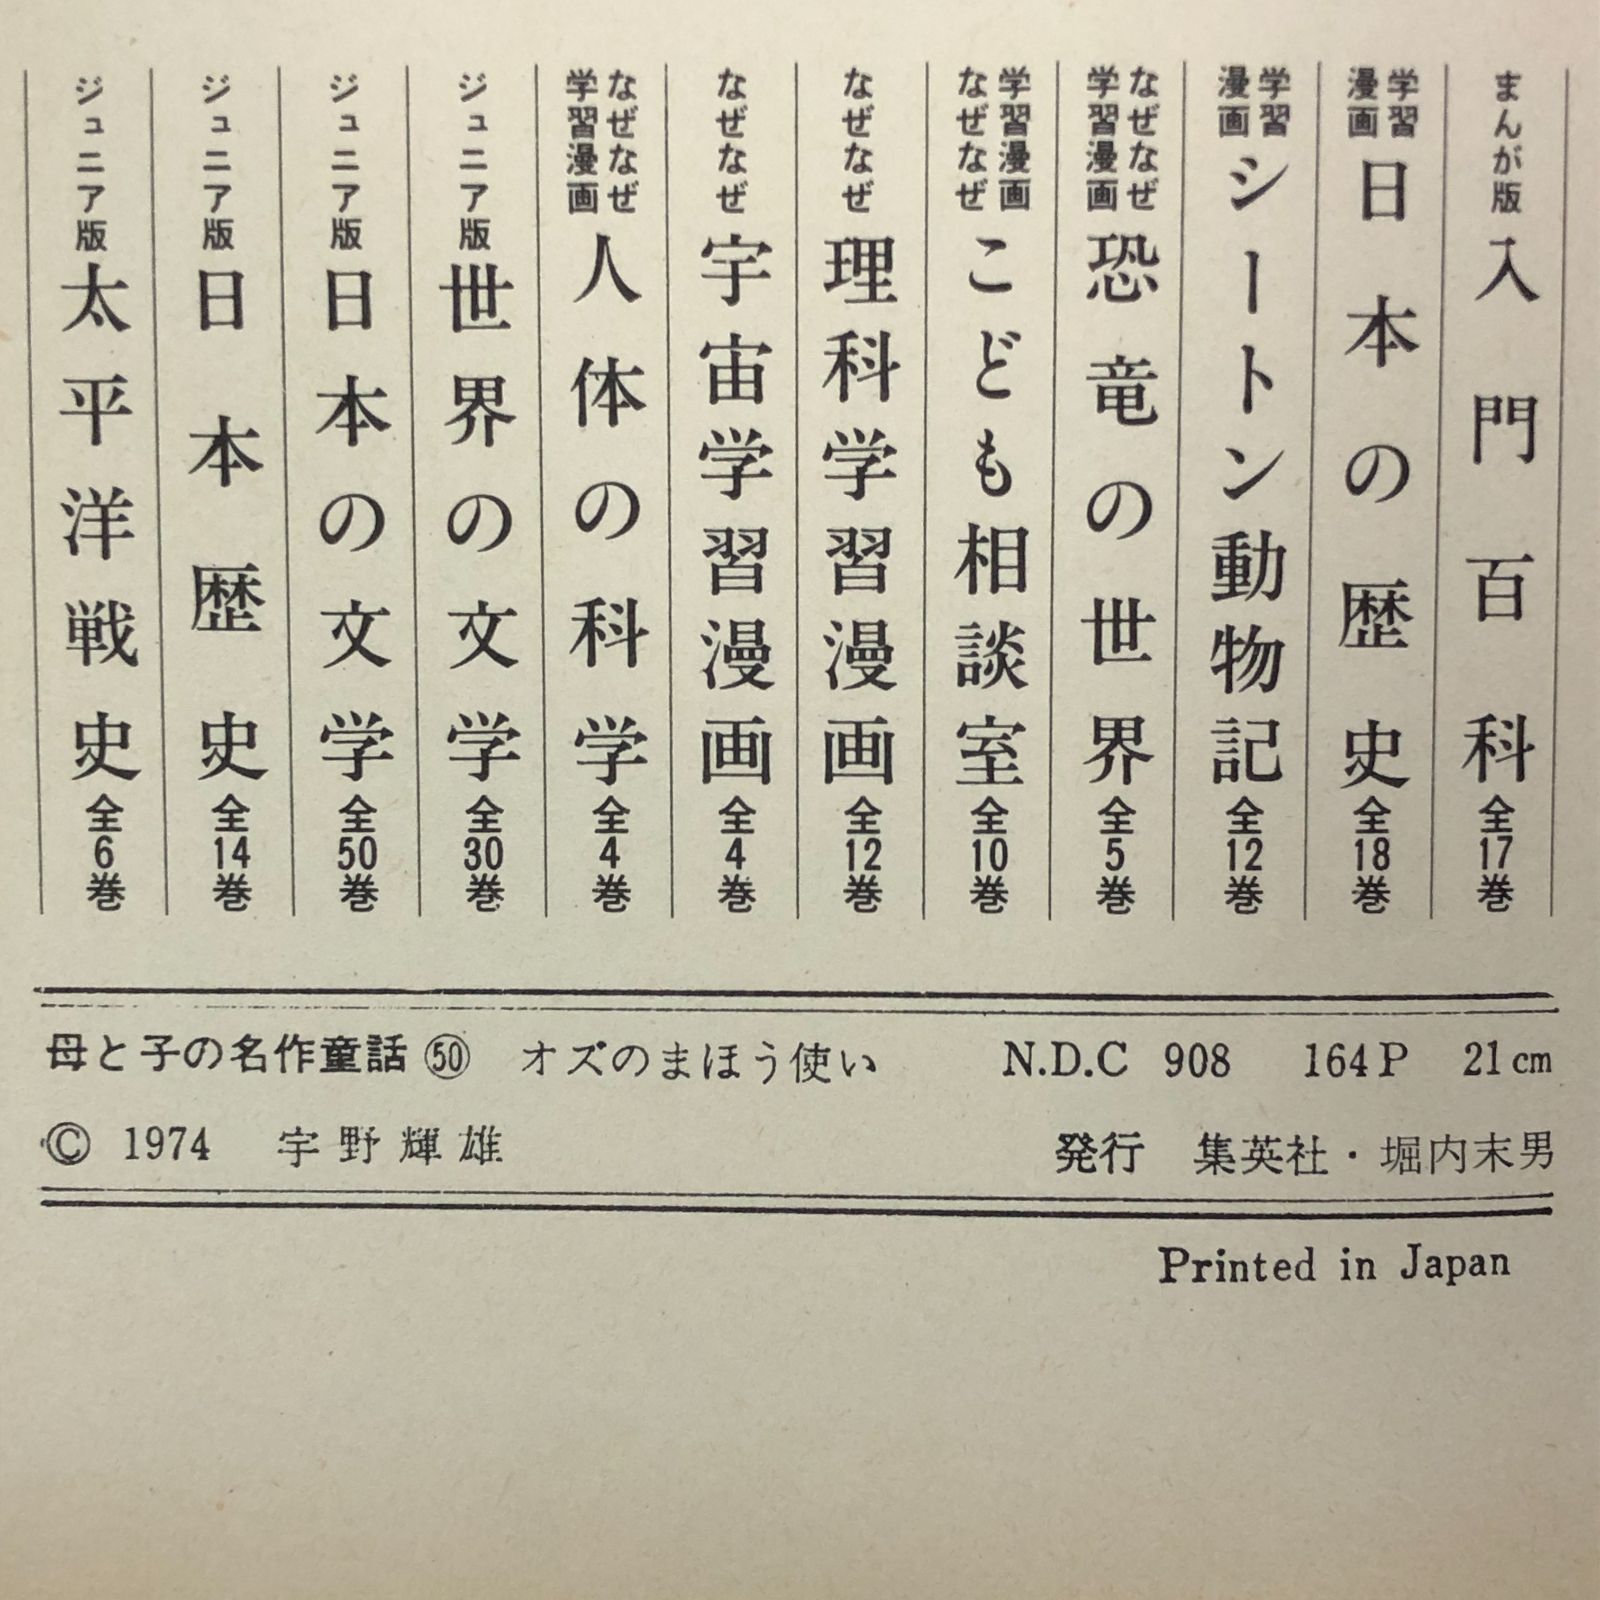 まんが版 入門百科 全17巻
学習漫画 日本の歴史 全18巻
学習漫画 シートン動物記 全12巻
なぜなぜ学習漫画 恐竜の世界 全5巻
学習漫画なぜなぜ こども相談室 全10巻
なぜなぜ 理科学習漫画 全12巻
なぜなぜ 宇宙学習漫画 全4巻
なぜなぜ学習漫画 人体の科学 全4巻
ジュニア版 世界の文学 全30巻
ジュニア版 日本の文学 全50巻
ジュニア版 日本歴史 全14巻
ジュニア版 太平洋戦史 全6巻
母と子の名作童話 ㊿ オズのまほう使い N.D.C 908 164P 21cm
© 1974 宇野輝雄 発行 集英社・堀内末男
Printed in Japan